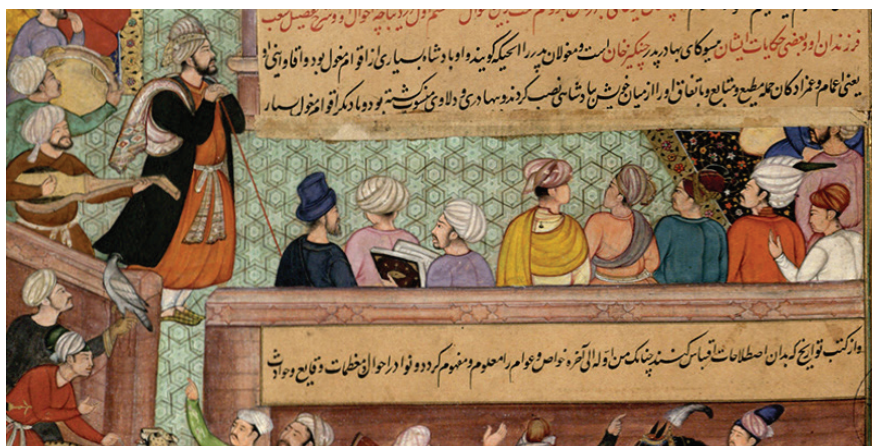 فرزندان او و بعضی حکایات ایشان یسوکای بهادر پدر چنگیزخان است و مغولان پدر را ایجیکه گویند و او پادشاه بسیاری از اقوام مغول بود و آقا و اینی او
یعنی اعمام و عمزادگان جمله مطیع و متابع و باتفاق او را از میان خویش بپادشاهی نصب کردند و بهادری و دلاوری منسوب گشته بود و با دیگر اقوام مغول بسیار
و از کتب تواریخ که بدان اصطلاحات اقتباس کنند چنانک من اوله الی آخره خواص و عوام را معلوم و مفهوم گردد و نوادر احوال و معظمات وقایع و حوادث